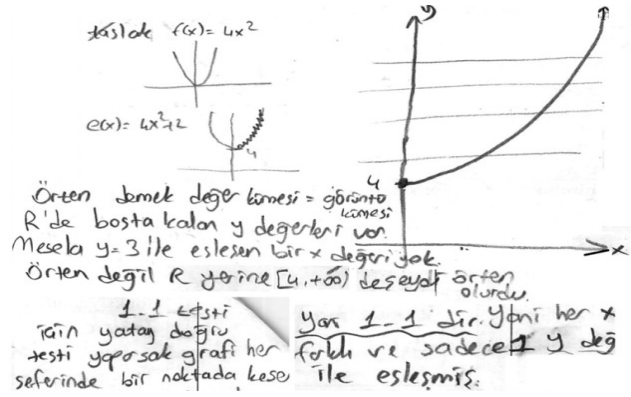 taslak f(x) = 4x²
y
e(x) = 4x²+2
4
4
x
Örten demek değer kümesi = görüntü kümesi
R'de boşta kalan y değerleri var.
Mesela y=3 ile eslesen bir x değeri yok.
Örten değil R yerine [4,+∞) deseydi örten olurdu.
1-1 testi
için yatay doğru
testi yaparsak grafi her
seferinde bir noktada kese
yani 1-1 dir. Yani her x
farklı ve sadece 1 y değ
ile eşleşmiş.